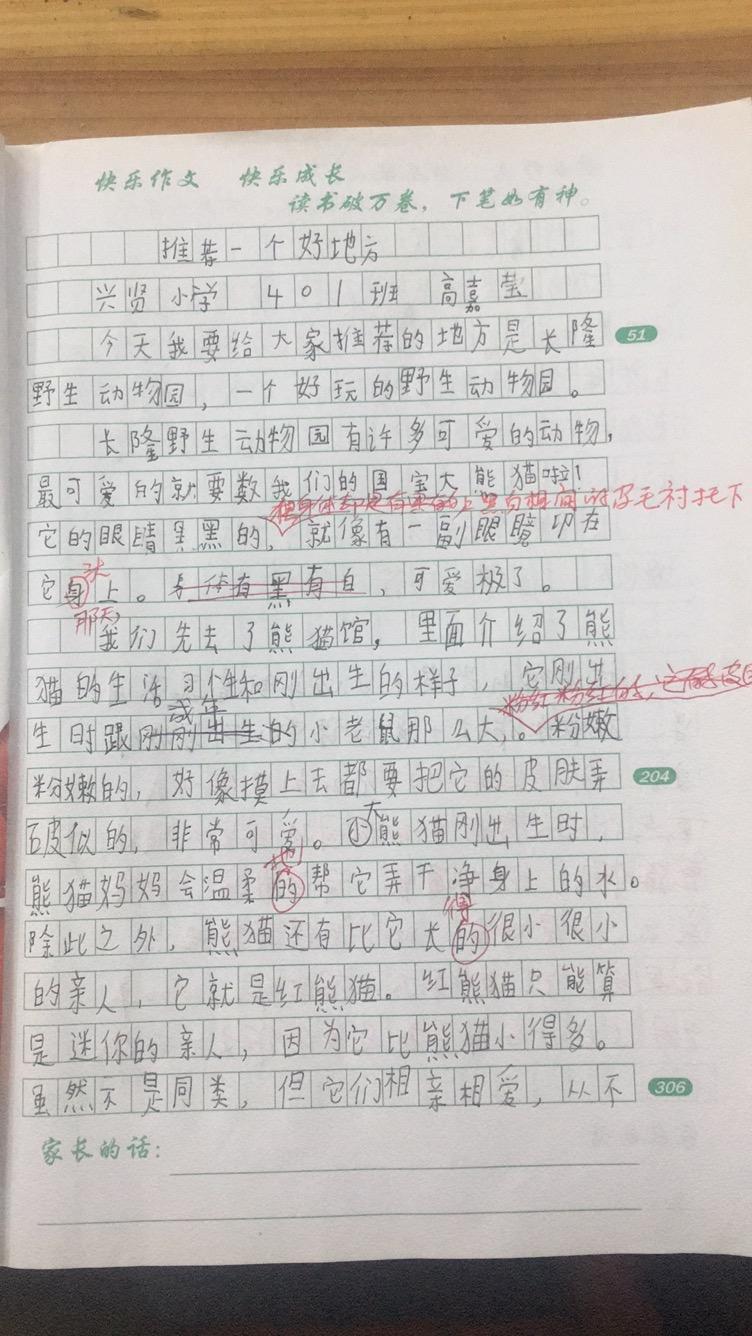 快乐作文 快乐成长
读书破万卷，下笔如有神。
推荐一个好地方
兴贤小学 401班 高嘉莹
今天我要给大家推荐的地方是长隆
51
野生动物园，一个好玩的野生动物园。
长隆野生动物园有许多可爱的动物，
最可爱的就要数我们的国宝大熊猫啦！
黑白相间的皮毛衬托下
它的眼睛黑黑的，就像有一副眼镜印在
头
它身上。身体有黑有白，可爱极了。
那天，
我们先去了熊猫馆，里面介绍了熊
猫的生活习个性和刚出生的样子，它刚出
粉红粉红的，
成年
生时跟刚刚出生的小老鼠那么大，。粉嫩
粉嫩的，好像摸上去都要把它的皮肤弄
204
破似的，非常可爱。小熊猫刚出生时，
大
地
熊猫妈妈会温柔的帮它弄干净身上的水。
得
除此之外，熊猫还有比它大的很小很小
的亲人，它就是红熊猫。红熊猫只能算
是迷你的亲人，因为它比熊猫小得多。
虽然不是同类，但它们相亲相爱，从不
306
家长的话：